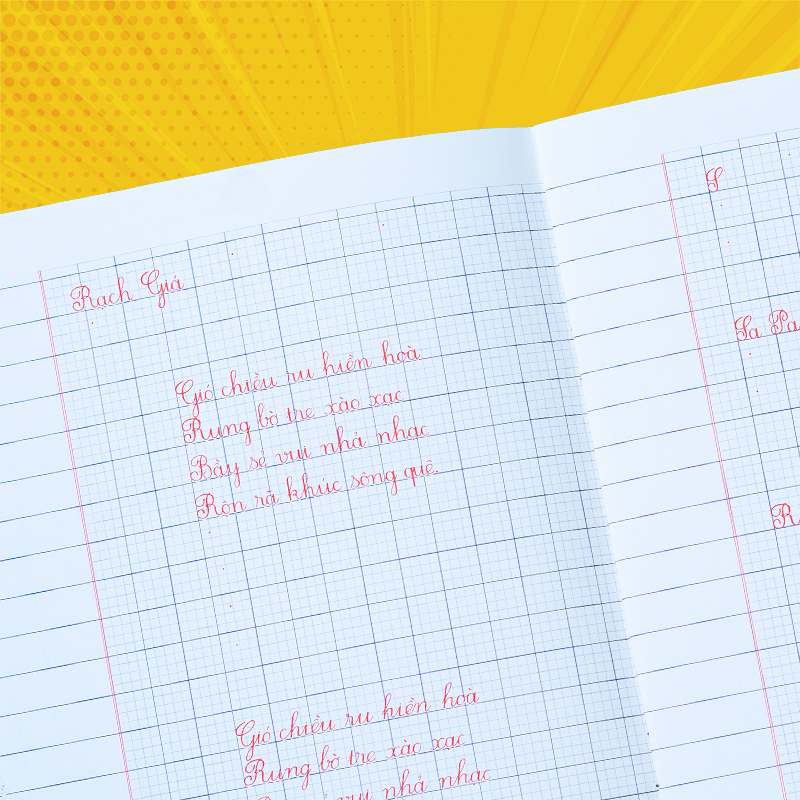 Rạch Giá
Gió chiều ru hiền hoà
Rung bờ tre xào xạc
Bầy sẻ vui nhả nhạc
Rộn rã khúc sông quê.
Gió chiều ru hiền hoà
Rung bờ tre xào xạc
vui nhả nhạc
S
Sa Pa
R